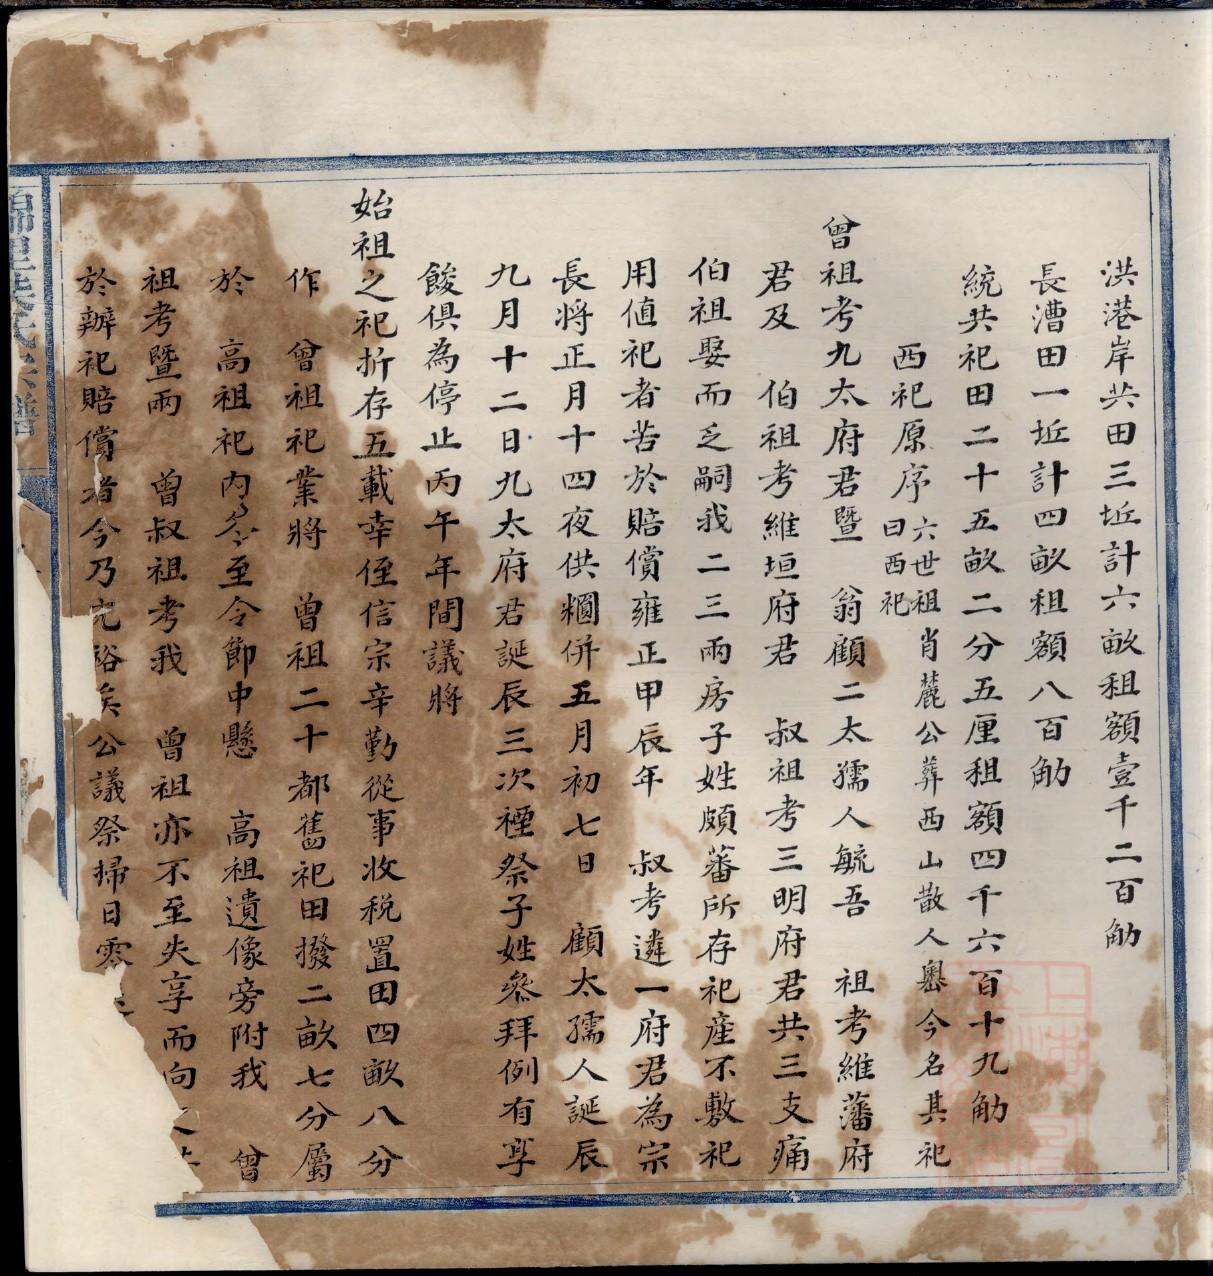 洪港岸共田三坵計六畝租額壹千二百觔
長漕田一坵計四畝租額八百觔
統共祀田二十五畝二分五厘租額四千六百十九觔
西祀原序 六世祖肖麓公葬西山散人嶴今名其祀曰西祀
曾祖考九太府君暨 翁顧二太孺人毓吾 祖考維藩府
君及 伯祖考維垣府君 叔祖考三明府君共三支痛
伯祖娶而乏嗣我二三兩房子姓頗蕃所存祀產不敷祀
用值祀者苦於賠償雍正甲辰年 叔考遴一府君為宗
長將正月十四夜供粿併五月初七日 顧太孺人誕辰
九月十二日九太府君誕辰三次禋祭子姓叅拜例有享
餕俱為停止丙午年間議將
始祖之祀折存五載幸侄信宗辛勤從事收税置田四畝八分
作 曾祖祀業將 曾祖二十都舊祀田撥二畝七分屬
於 高祖祀內 至令節中懸 高祖遺像旁附我 曾
祖考暨兩 曾叔祖考我 曾祖亦不至失享而向之
於辦祀賠償者今乃充裕矣公議祭掃日